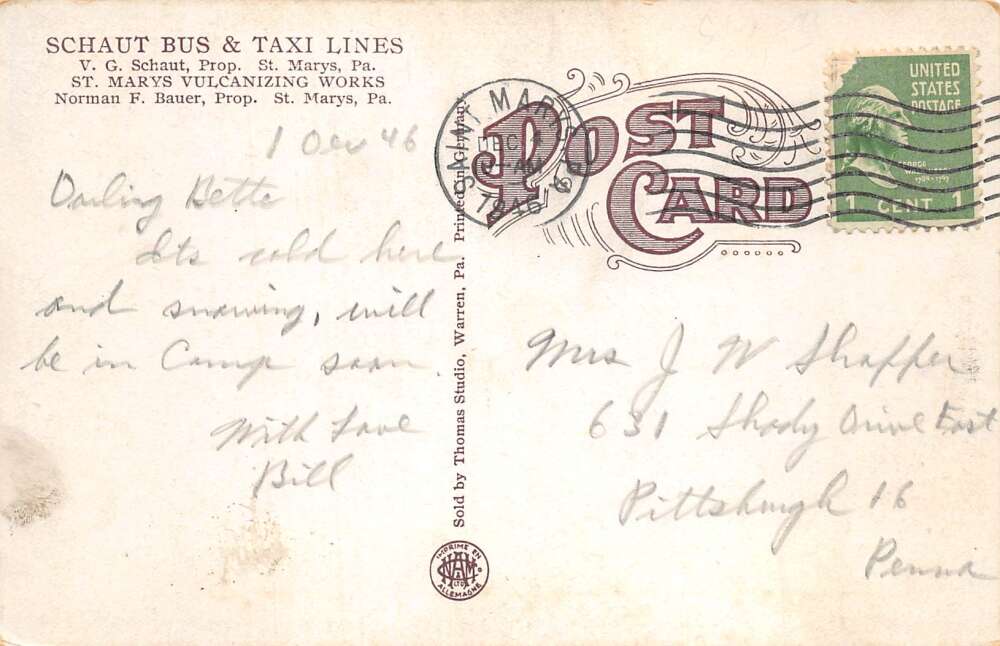 SCHAUT BUS & TAXI LINES
V. G. Schaut, Prop. St. Marys, Pa.
ST. MARYS VULCANIZING WORKS
Norman F. Bauer, Prop. St. Marys, Pa.
1 Dec 46
Darling Bette
Its cold here
and snowing, will
be in Camp soon.
With Love
Bill
Sold by Thomas Studio, Warren, Pa. Printed in Germany
IMPRIME EN
ALLEMAGNE
POST
CARD
SAINT MARYS
DEC
AM
1946
PA
UNITED
STATES
POSTAGE
GEORGE
1 CENT 1
Mrs J W Shaffer
631 Shady Drive East
Pittsburgh 16
Penna